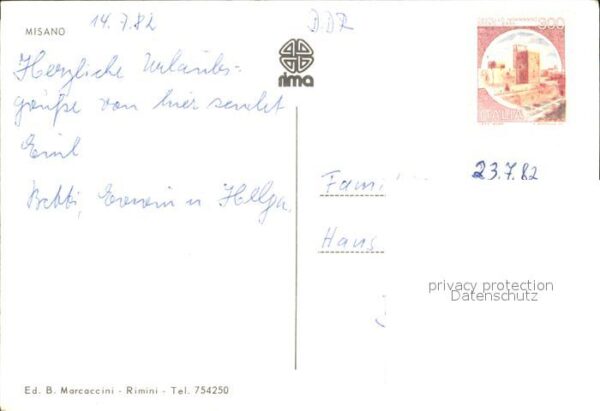 MISANO
14.7.82
DDR
Herzliche Urlaubs-
grüße von hier sendet
Emil
Betti, Erwin u Helga.
rima
300
ITALIA
Fami
23.7.82
Hans
privacy protection
Datenschutz
Ed. B. Marcaccini - Rimini - Tel. 754250